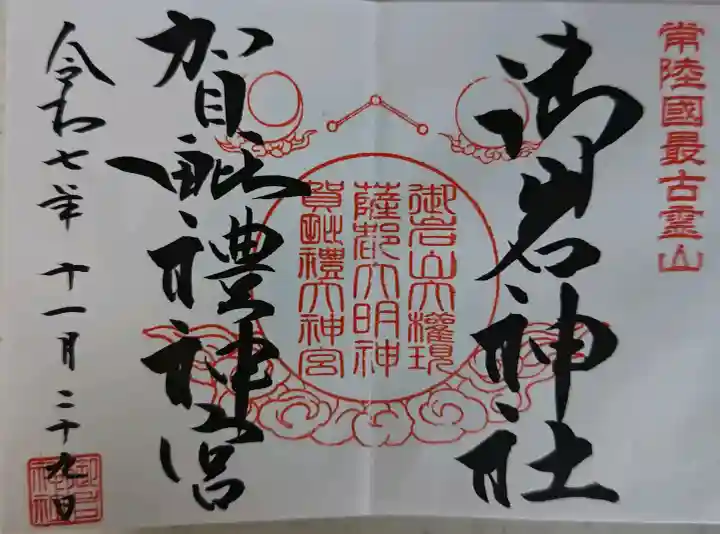 常陸國最古霊山
御岩神社
御岩山大權現
薩都大明神
賀毗禮大神宮
賀毗禮神宮
令和七年 十一月 二十九日
御岩
神社